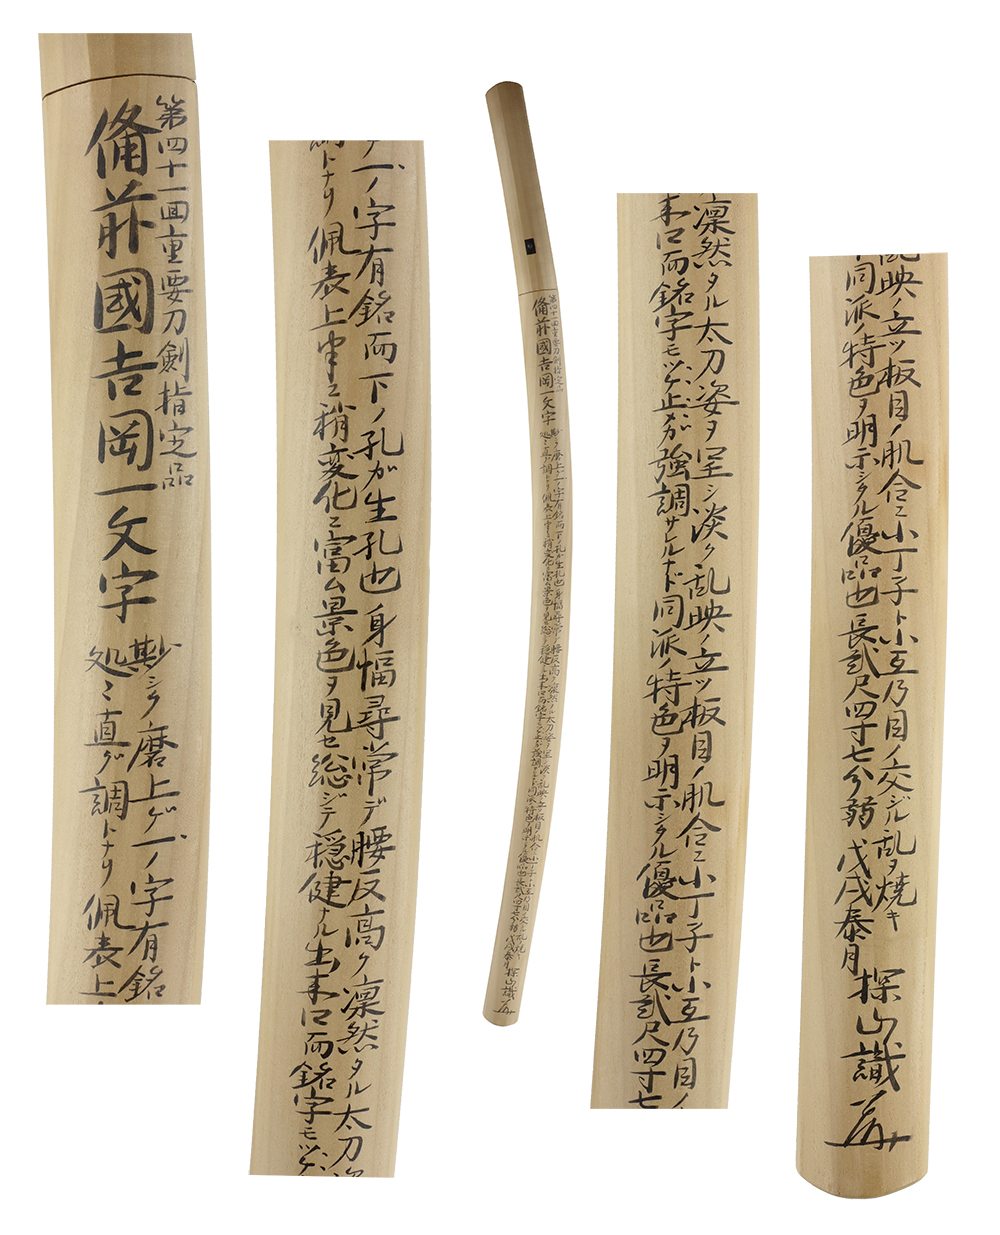 第四十一回重要刀剣指定品
備前國吉岡一文字
尠シク磨上ゲ一ノ字有銘
処々直グ調トナリ佩表上
一ノ字有銘而下ノ孔ガ生孔也身幅尋常デ腰反高ク凛然タル太刀姿
調トナリ佩表上半ニ稍変化ニ富ム景色ヲ見セ総ジテ穏健ナル出来口而銘字モ
凛然タル太刀姿ヲ呈シ淡ク乱映ノ立ツ板目ノ肌合ニ小丁子ト小互乃目ノ
来口而銘字モ止ガ強調サレルナド同派ノ特色ヲ明示シタル優品也長弐尺四寸七
乱映ノ立ツ板目ノ肌合ニ小丁子ト小互乃目ノ交ジル乱ヲ焼キ
同派ノ特色ヲ明示シタル優品也長弐尺四寸七分弱戊戌泰月
探山識